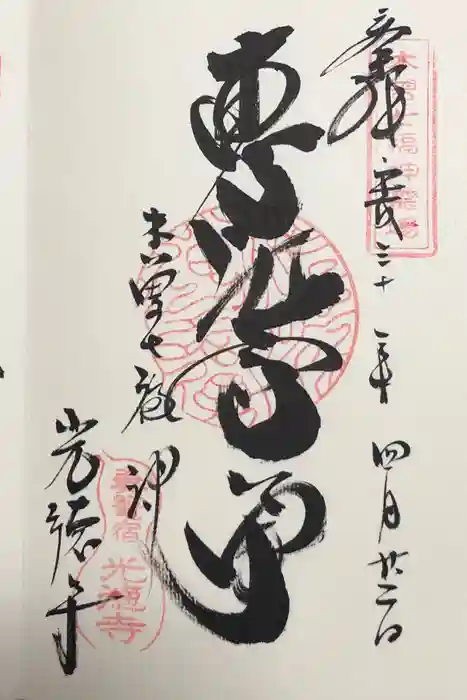 奉拝 平成三十一年 四月廿二日
恵比寿尊
木曽七福神
光徳寺
木曽七福神霊場
妻籠宿
光徳寺